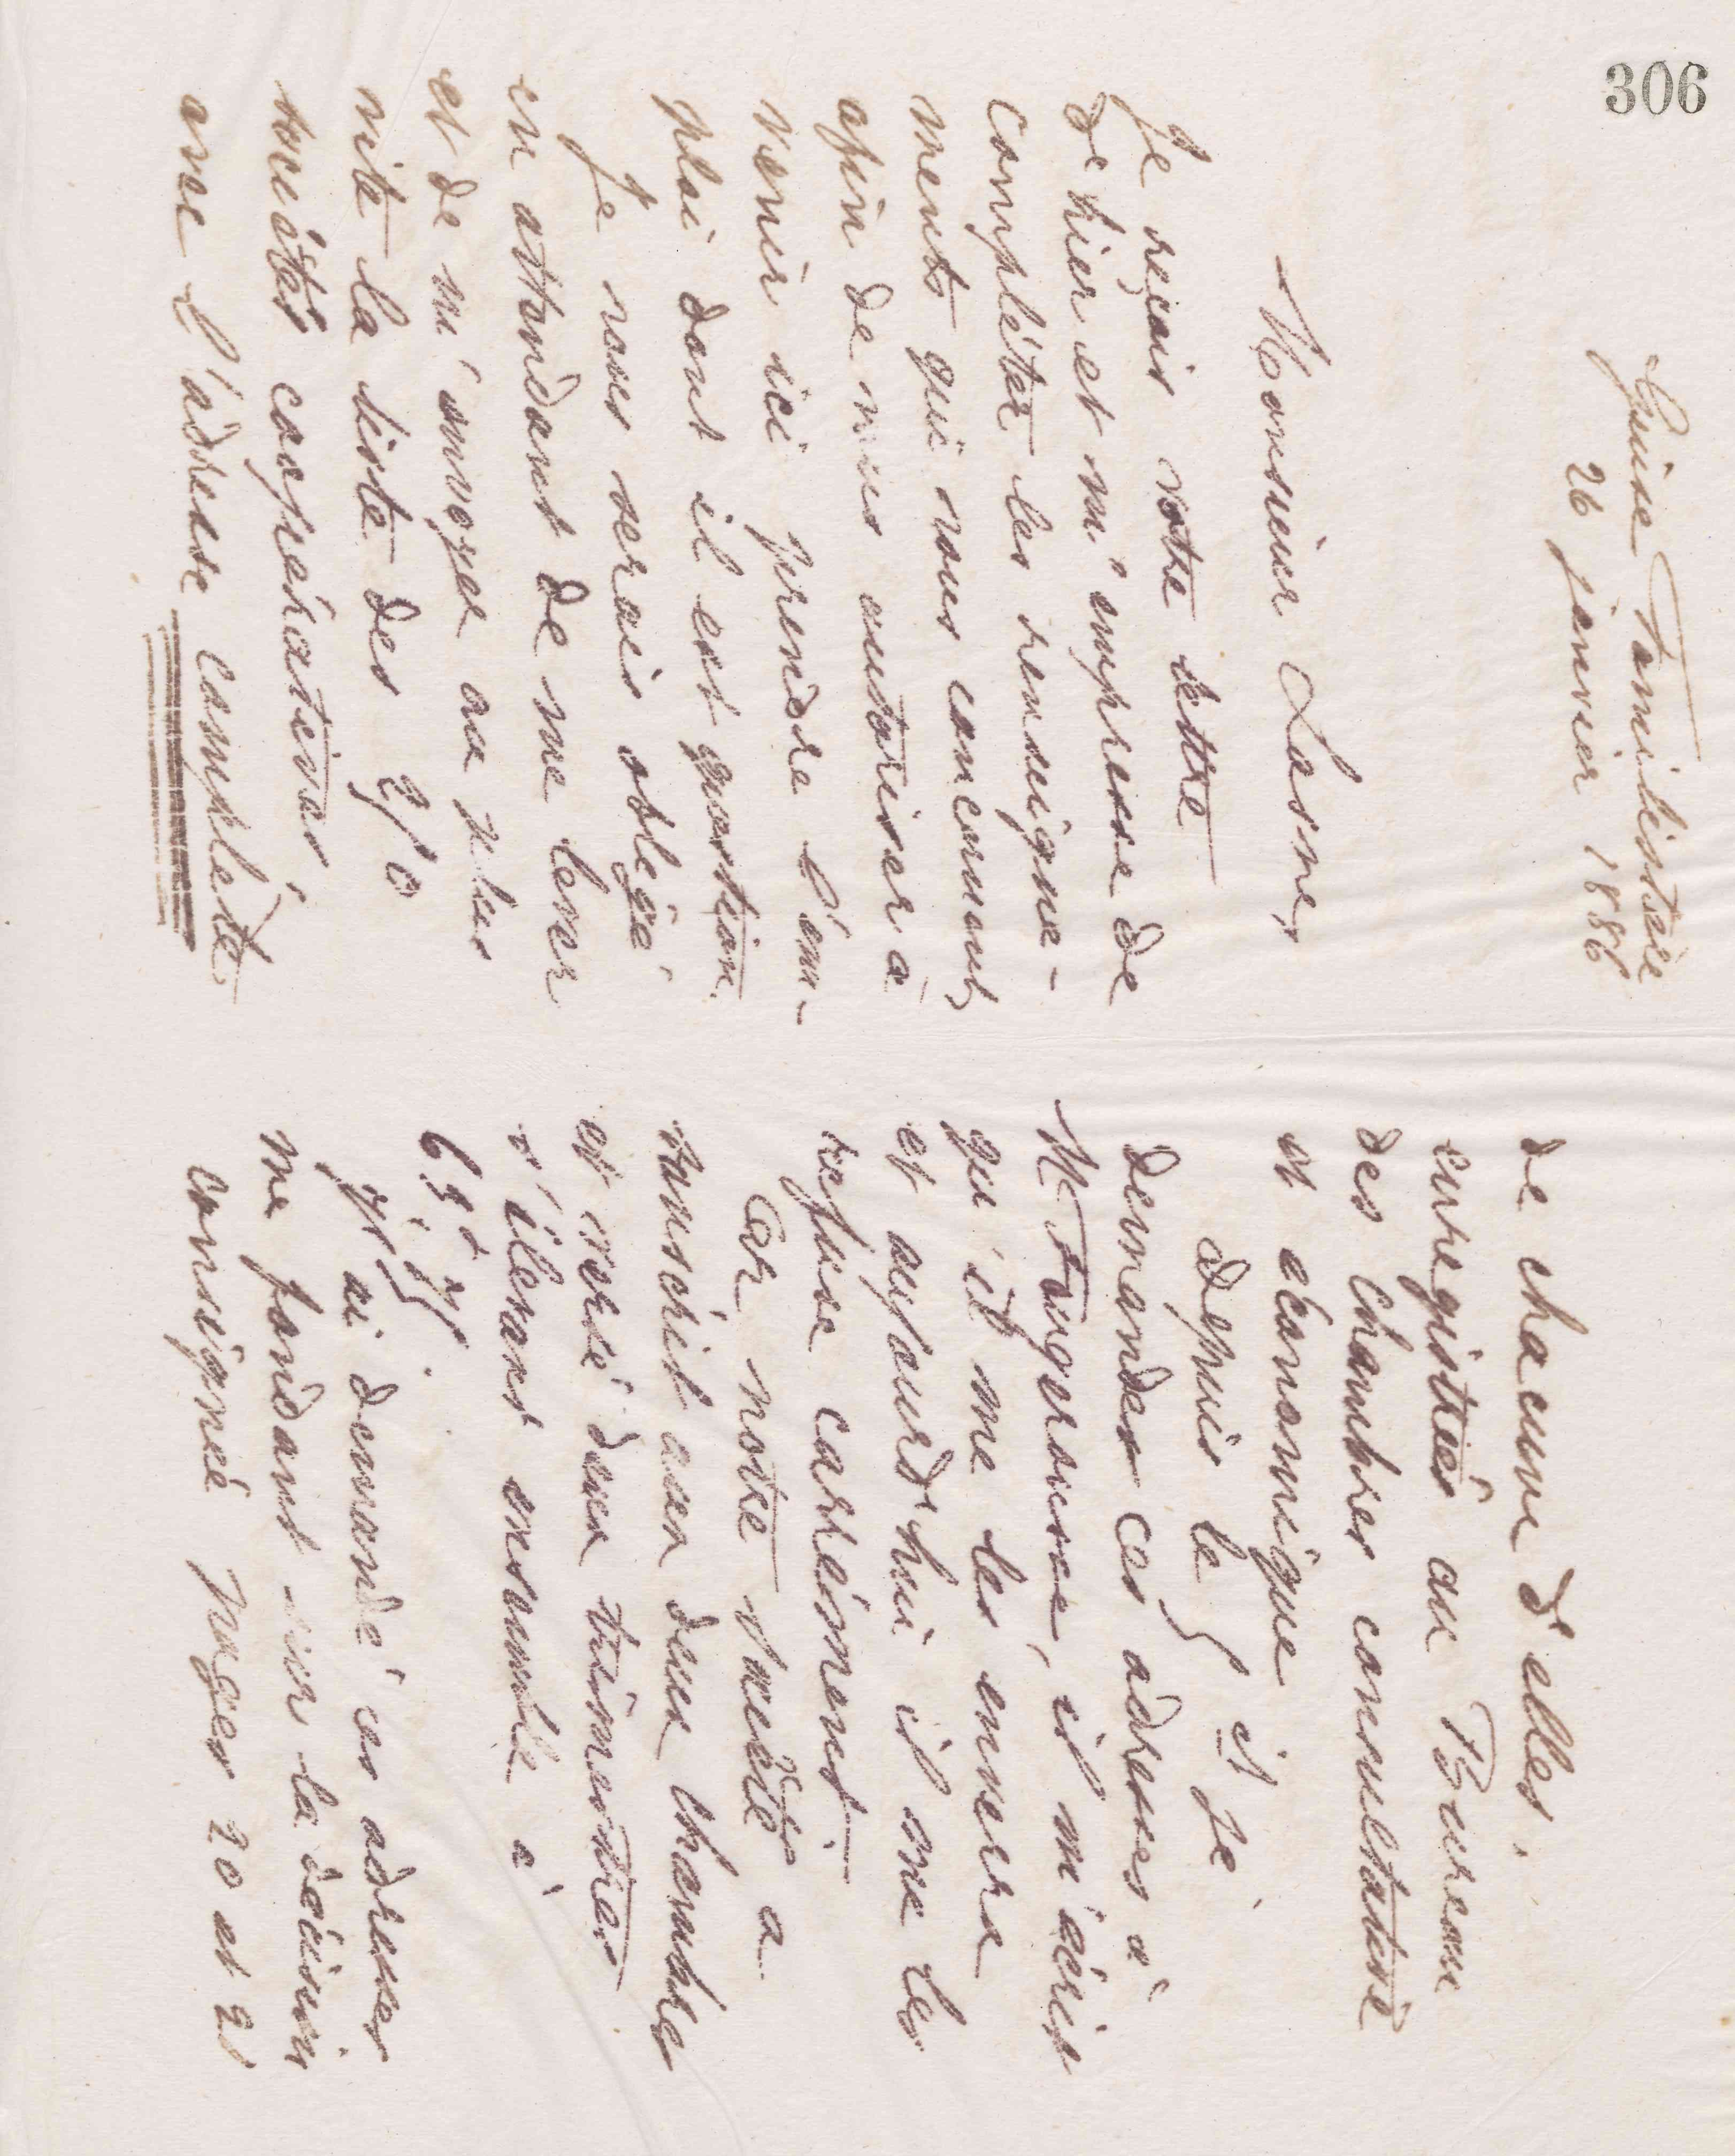 306
Guise Familistère
26 janvier 1886
Monsieur Lasne,
Je reçois votre lettre
de hier et m'empresse de
compléter les renseigne-
ments qui vous concernent,
afin de vous autoriser à
venir ici prendre l'em-
ploi dont il est question.
Je vous serais obligé
en attendant de me lever
et de m'envoyer au plus
vite la liste des
sociétés coopératives,
avec l'adresse complète
de chacune d'elles,
enregistrées au Bureau
des Chambres consultatives
et économique
Depuis le 5 et je
demandes ces adresses à
M. Fougerousse, il m'écrit
qu'il me les enverra
et aujourd'hui il me les
refuse carrément.
Car notre société a
souscrit aux deux chambres
et versé deux trimestres
s'élevant ensemble à
J'ai demandé ces adresses
me fondant sur la décision
consignée pages 20 et 21